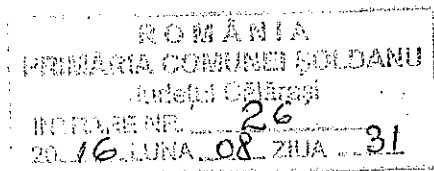 ROMÂNIA
PRIMĂRIA COMUNEI ŞOLDANU
Judeţul Călăraşi
INTRARE NR. 26
20 16 LUNA 08 ZIUA 31